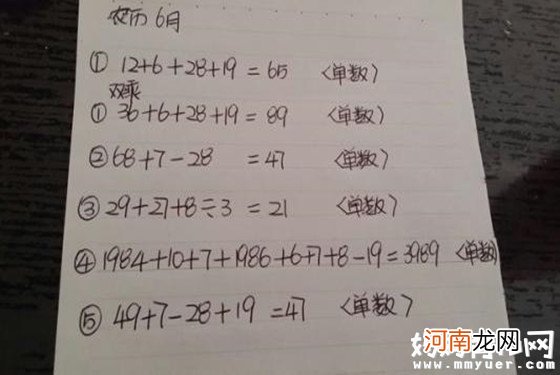 农历6月
① 12+6+28+19=65 〈单数〉
双乘
① 36+6+28+19=89 〈单数〉
② 68+7-28 =47 〈单数〉
③ 29+27+8÷3 =21 〈单数〉
④ 1984+10+7+1986+6+7+8-19=3989 〈单数〉
⑤ 49+7-28+19 =47 〈单数〉
河南龙网
www.mmyuer.com